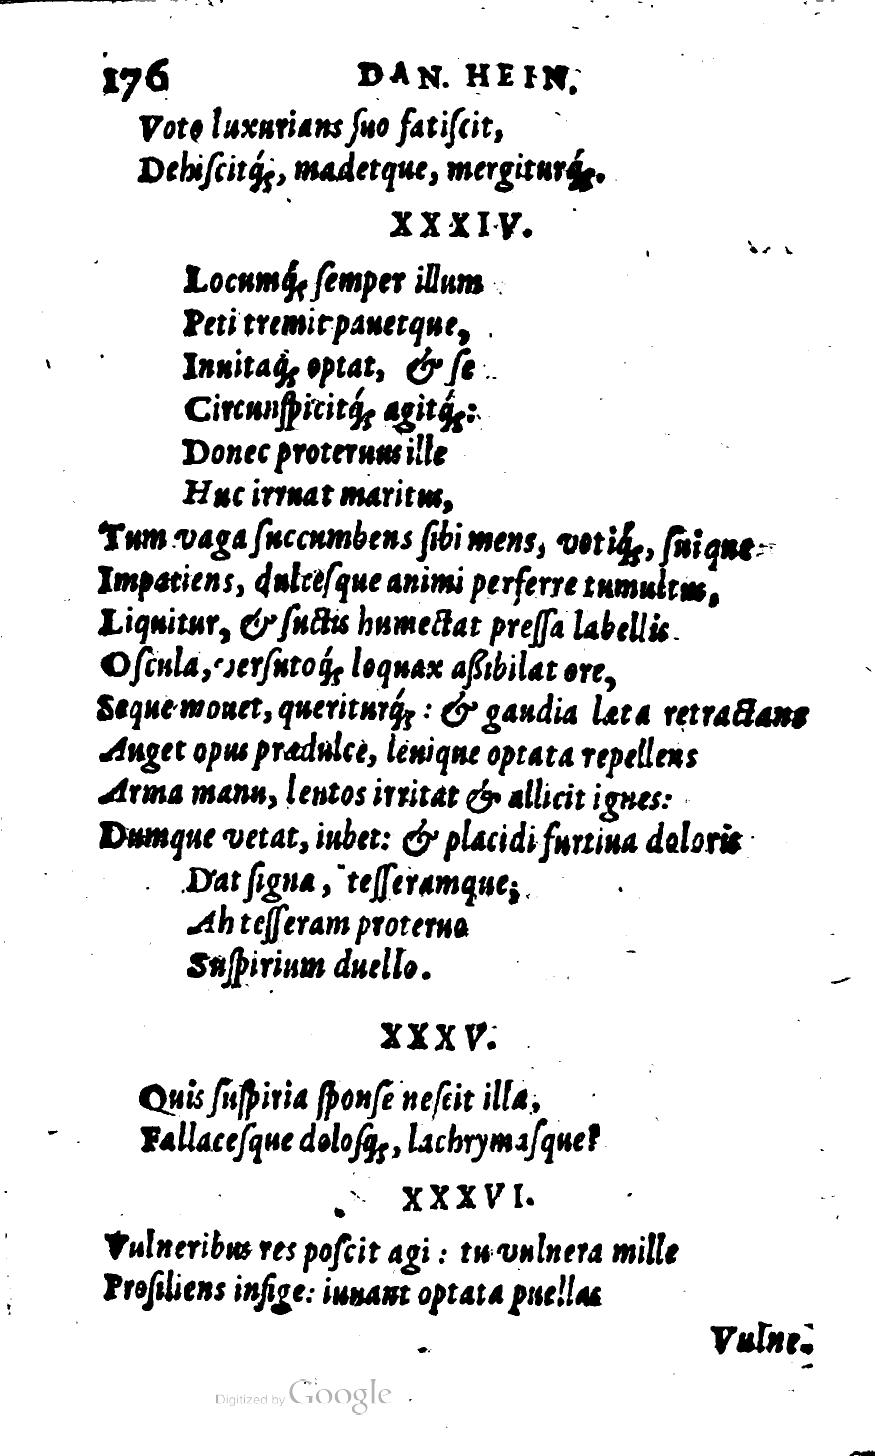 176 DAN. HEIN.
Voto luxurians ſuo fatiſcit,
Dehiſcitq́;, madetque, mergiturq́;.
XXXIV.
Locumq́; ſemper illum
Peti tremit pauetque,
Inuitaq́; optat, & ſe
Circunſpicitq́; agitq́;:
Donec proteruus ille
Huc irruat maritus,
Tum vaga ſuccumbens ſibi mens, votiq́;, ſuique
Impatiens, dulceſque animi perferre tumultus,
Liquitur, & ſuctis humectat preſſa labellis
Oſcula, verſutoq́; loquax aßibilat ore,
Seque mouet, queriturq́; : & gaudia læta retractans
Auget opus prædulce, lenique optata repellens
Arma manu, lentos irritat & allicit ignes:
Dumque vetat, iubet: & placidi furtiua doloris
Dat ſigna, teſſeramque;
Ah teſſeram proteruo
Suſpirium duello.
XXXV.
Quis ſuſpiria ſponſe neſcit illa,
Fallaceſque doloſq́;, lachrymaſque?
XXXVI.
Vulneribus res poſcit agi : tu vulnera mille
Proſiliens infige: iuuant optata puellas
Vulne-
Digitized by Google